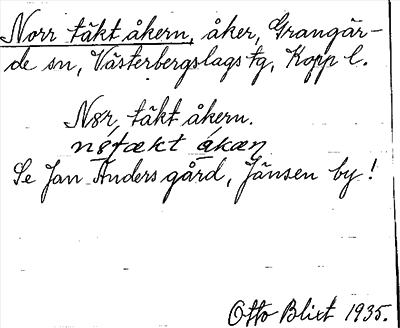 Norr täkt åkern, åker, Grangär-
de sn, Västerbergslags tg, Kopp l.
Nör, täkt åkern.
Se Jan Anders gård, Jänsen by!
Otto Blixt 1935.